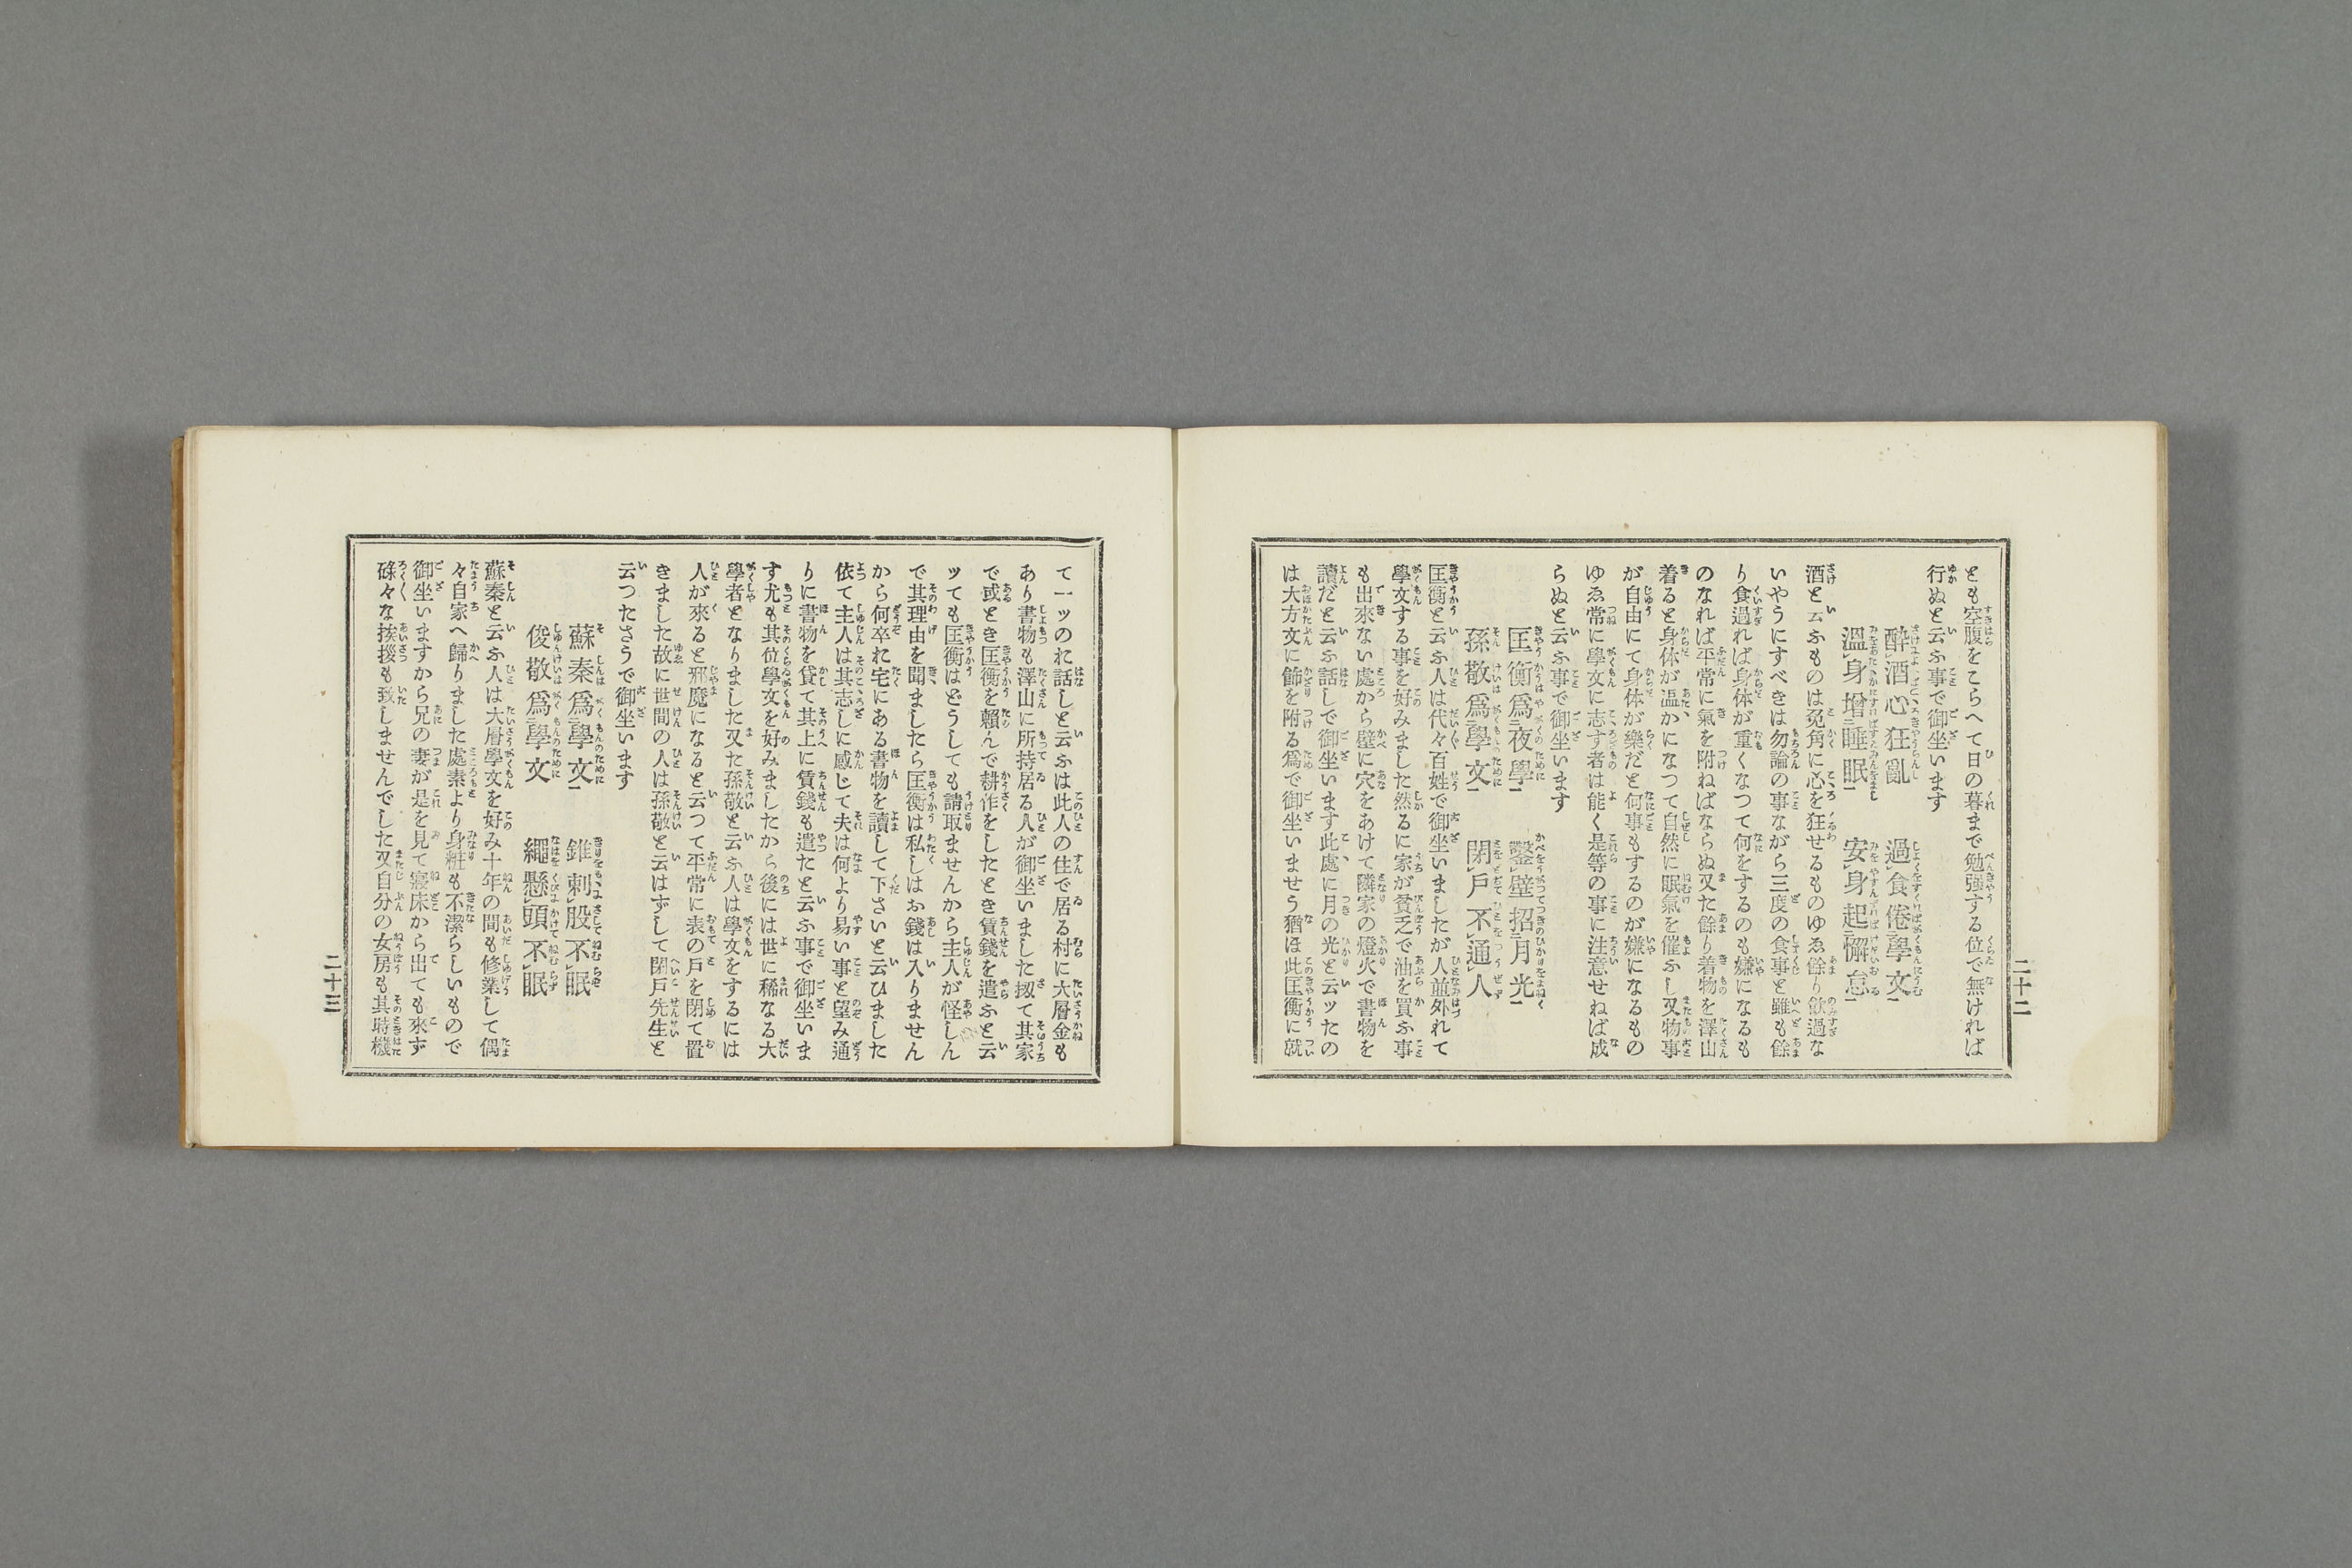 二十二
とも空腹をこらへて日の暮まで勉强する位で無ければ
行ぬと云ふ事で御坐います
醉酒心狂亂 過食倦學文
溫身增睡眠 安身起懈怠
酒と云ふものは兎角に心を狂せるものゆゑ餘り飮過な
いやうにすべきは勿論の事ながら三度の食事と雖も餘
り食過れば身体が重くなつて何をするのも嫌になるも
のなれば平常に氣を附ねばならぬ又た餘り着物を澤山
着ると身体が溫かになつて自然に眠氣を催ふし又物事
が自由にて身体が樂だと何事もするのが嫌になるもの
ゆゑ常に學文に志す者は能く是等の事に注意せねば成
らぬと云ふ事で御坐います
匡衡爲夜學 鑿壁招月光
孫敬爲學文 閉戶不通人
匡衡と云ふ人は代々百姓で御坐いましたが人並外れて
學文する事を好みました然るに家が貧乏で油を買ふ事
も出來ない處から壁に穴をあけて隣家の燈火で書物を
讀だと云ふ話しで御坐います此處に月の光と云ッたの
は大方文に飾を附る爲で御坐いませう猶ほ此匡衡に就
て一ッのお話しと云ふは此人の住で居る村に大層金も
あり書物も澤山に所持居る人が御坐いました扨て其家
で或とき匡衡を賴んで耕作をしたとき賃錢を遣ふと云
ッても匡衡はどうしても請取ませんから主人が怪しん
で其理由を聞ましたら匡衡は私しはお錢は入りません
から何卒お宅にある書物を讀して下さいと云ひました
依て主人は其志しに感じて夫は何より易い事と望み通
りに書物を貸て其上に賃錢も遣たと云ふ事で御坐いま
す尤も其位學文を好みましたから後には世に稀なる大
學者となりました又た孫敬と云ふ人は學文をするには
人が來ると邪魔になると云つて平常に表の戶を閉て置
きました故に世間の人は孫敬と云はずして閉戶先生と
云つたさうで御坐います
蘇秦爲學文 錐刺股不眠
俊敬爲學文 繩懸頭不眠
蘇秦と云ふ人は大層學文を好み十年の間も修業して偶
々自家へ歸りました處素より身粧も不潔らしいもので
御坐いますから兄の妻が是を見て寢床から出ても來ず
碌々な挨拶も致しませんでした又自分の女房も其時機
二十三